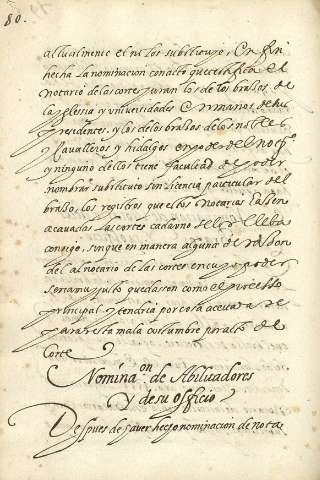 80.
actualmente el no los substituye, En fin
hecha la nominacion con alto que certifica el
notario de las cortes juran los de los brassos de
la yglesia y universidades en manos de sus
presidentes. y los de los brassos de los nobles
Cavalleros y hidalgos en poder del not.º
y ninguno dellos tiene facultad de poder
nombrar substituto sin licencia particular del
brasso, los registros que estos notarios hasen
acavadas las cortes cada uno se lo lleba
consigo, sin que en manera alguna de rason
del al notario de las cortes en cuyo poder
seria muy justo quedasen como el processo
principal y tendria por cosa acertada se
para resta mala costumbre por acto de
Corte
Nominaon. de Abiluadores
Y de su officio
Despues de haver hecho nominacion de nota